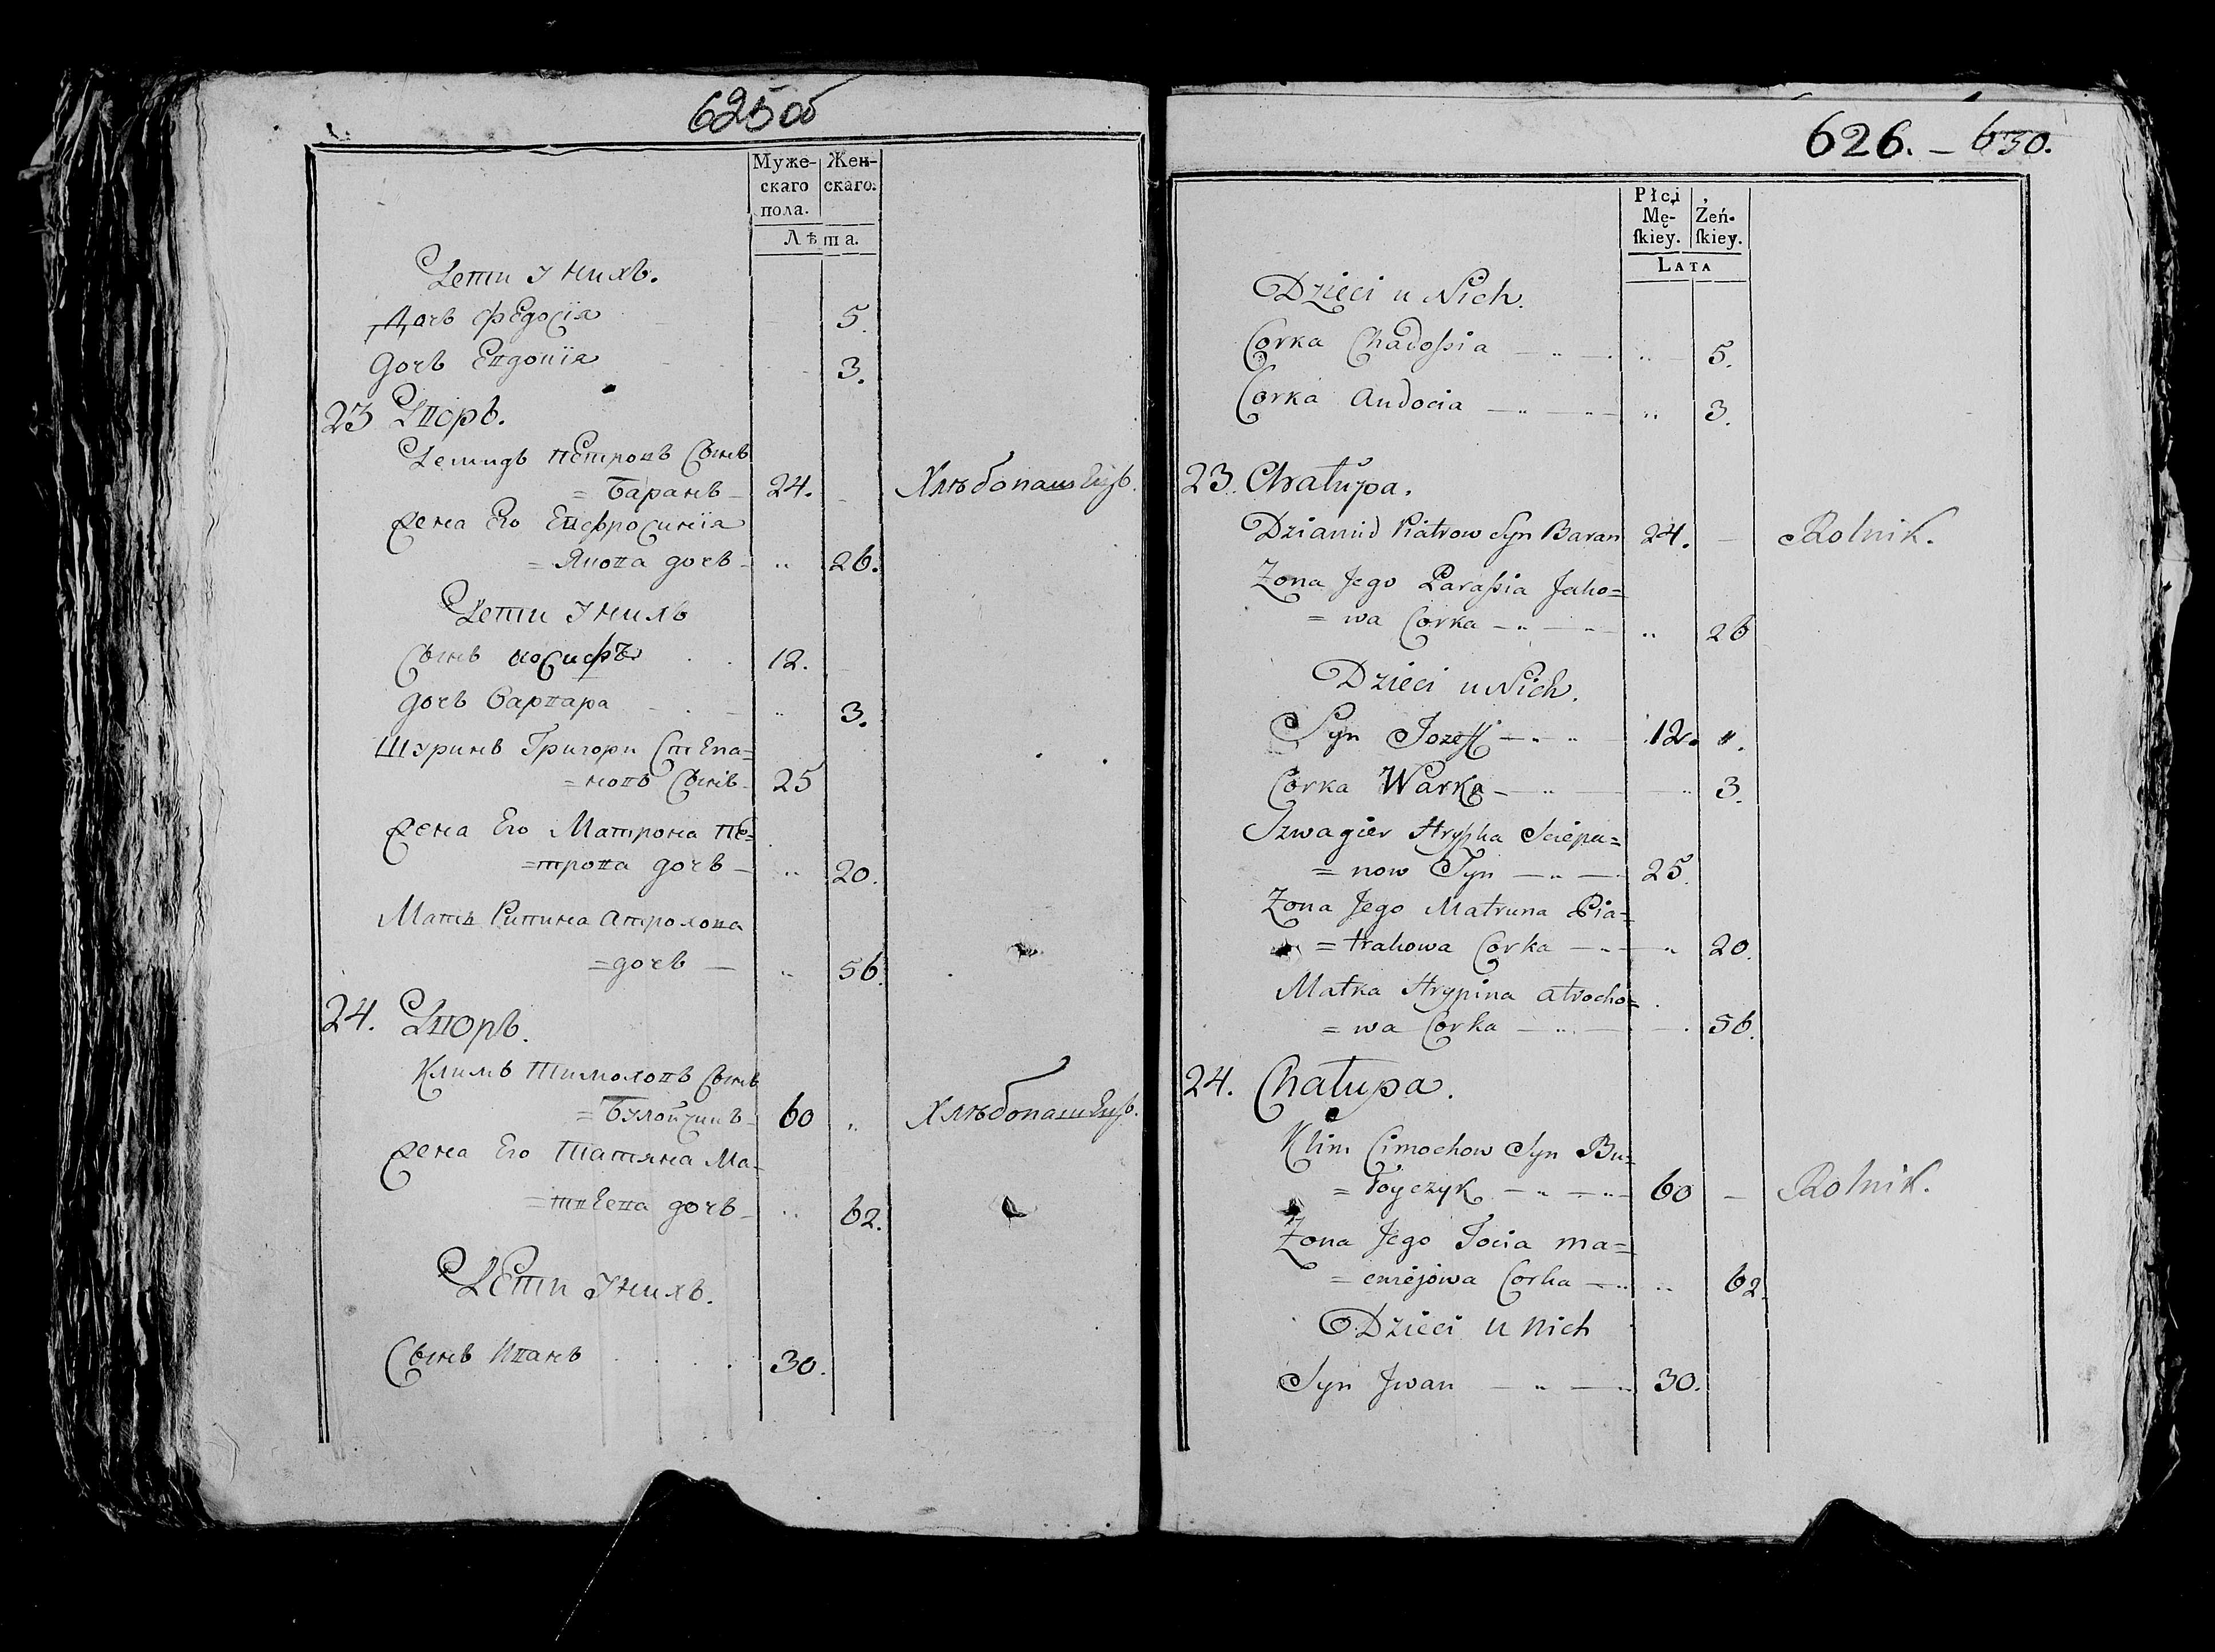 625об
Муже- Жен-
скаго скаго.
пола.
Лѣта.
Дети у нихъ.
Дочь Федосія 5.
Дочь Евдокія 3.
23 Дворъ.
Демидъ Петровъ Сынъ
= Баранъ 24. Хлѣбопашецъ.
Жена Его Евфросинія
= Якова дочь 26.
Дети у нихъ
Сынъ иосифъ 12.
дочь Варвара 3.
Шуринъ Григори Степа=
=новъ Сынъ 25
Жена Его Матрона Пе=
=трова дочь 20.
Мать Атрохова
=дочь 56.
24. Дворъ.
Климъ Тимоховъ Сынъ
= 60 Хлѣбопашецъ.
Жена Его Татяна Ма=
=твеева дочь 62.
Дети у нихъ.
Сынъ Иванъ 30.
626. – 630.
Płci
Mę- Żeń-
ſkiey. ſkiey.
LATA
Dzieci u Nich.
Corka Chadoſsia 5.
Corka Audocia 3.
23. Chałupa.
Dziamid Piatrow Syn Baran 24. Rolnik.
Zona Jego Paraſsia Jako=
= wa Corka 26
Dzieci u Nich.
Syn Jozeff 12.
Corka Warka 3.
Szwagier Hryſzka Sciepa=
= now Syn 25.
Zona Jego Matruna Pia=
= trakowa Corka 20.
Matka Hrypina atrocho=
= wa Corka 56.
24. Chałupa.
Klim Cimochow Syn Bu=
= łoyczyk 60 Rolnik.
Zona Jego Tocia ma=
= ciejowa Corka 62.
Dzieci u Nich
Syn Jwan 30.